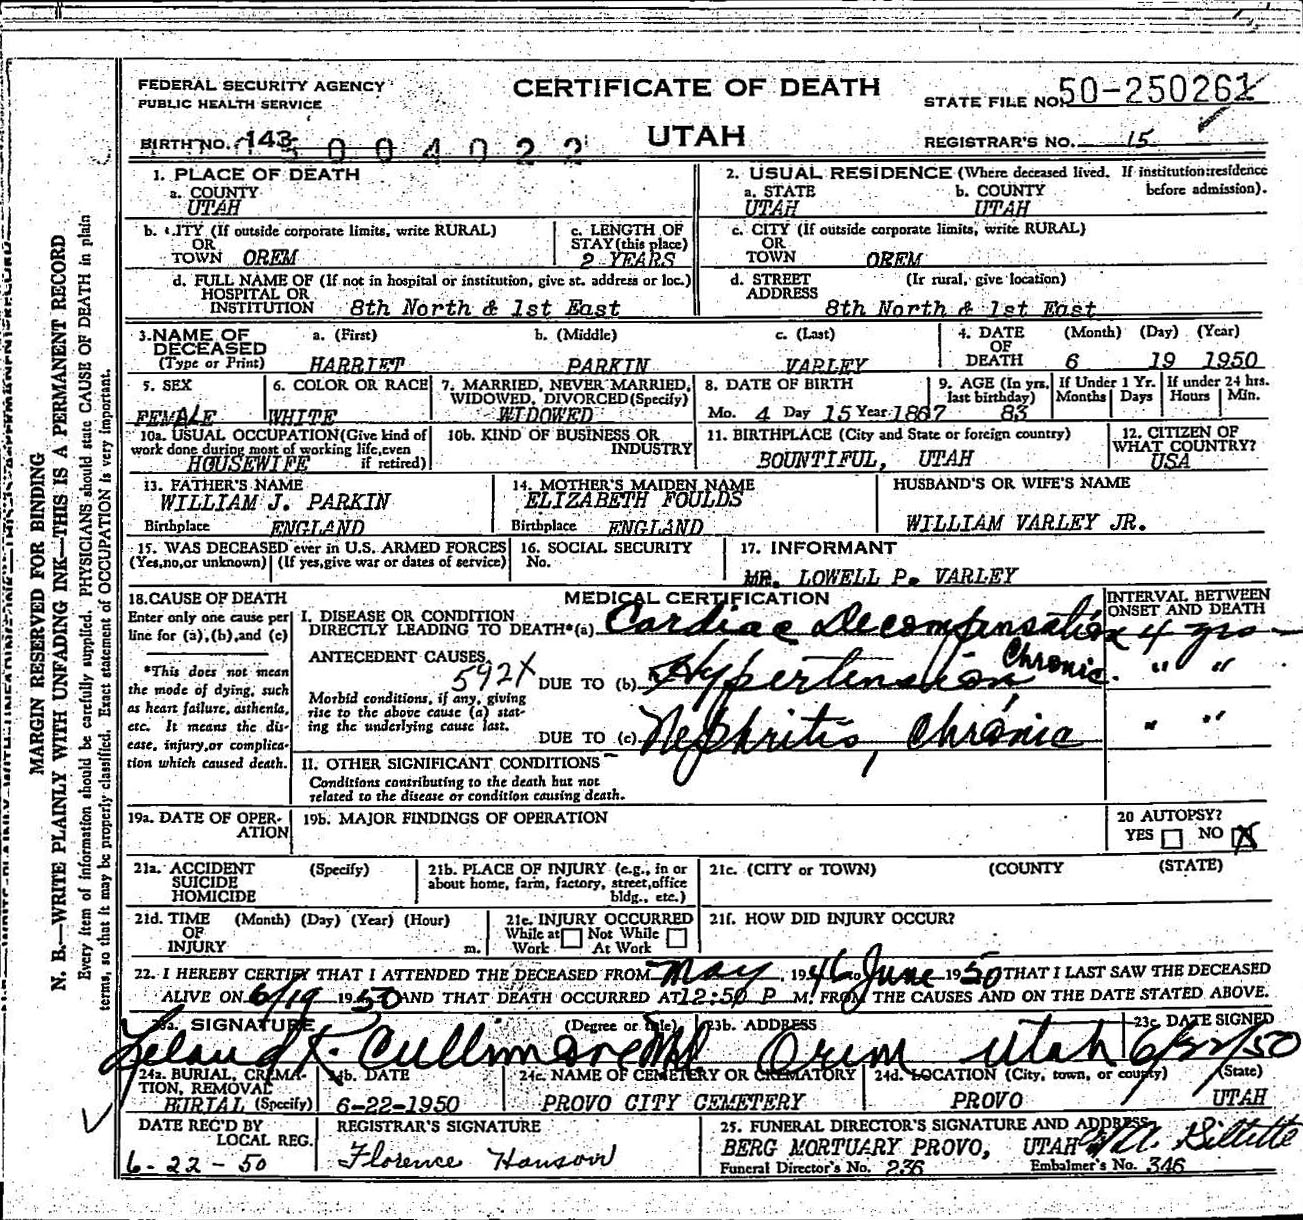 CERTIFICATE OF DEATH
UTAH
FEDERAL SECURITY AGENCY
PUBLIC HEALTH SERVICE
STATE FILE NO. 50-250261
BIRTH NO. 143 004022
REGISTRAR'S NO. 15
MARGIN RESERVED FOR BINDING
N. B.—WRITE PLAINLY WITH UNFADING INK—THIS IS A PERMANENT RECORD
Every item of information should be carefully supplied. PHYSICIANS should state CAUSE OF DEATH in plain
terms, so that it may be properly classified. Exact statement of OCCUPATION is very important.
1. PLACE OF DEATH
a. COUNTY
UTAH
2. USUAL RESIDENCE (Where deceased lived. If institution: residence
before admission).
a. STATE b. COUNTY
UTAH UTAH
b. CITY (If outside corporate limits, write RURAL)
OR
TOWN OREM
c. LENGTH OF
STAY (this place)
2 YEARS
c. CITY (If outside corporate limits, write RURAL)
OR
TOWN OREM
d. FULL NAME OF (If not in hospital or institution, give st. address or loc.)
HOSPITAL OR
INSTITUTION 8th North & 1st East
d. STREET (Ir rural, give location)
ADDRESS
8th North & 1st East
3. NAME OF
DECEASED
(Type or Print)
a. (First) b. (Middle) c. (Last)
HARRIET PARKIN VARLEY
4. DATE
OF
DEATH
(Month) (Day) (Year)
6 19 1950
5. SEX
FEMALE
6. COLOR OR RACE
WHITE
7. MARRIED, NEVER MARRIED,
WIDOWED, DIVORCED (Specify)
WIDOWED
8. DATE OF BIRTH
Mo. 4 Day 15 Year 1867
9. AGE (In yrs.
last birthday)
83
If Under 1 Yr.
Months Days
If under 24 hrs.
Hours Min.
10a. USUAL OCCUPATION (Give kind of
work done during most of working life, even
HOUSEWIFE if retired)
10b. KIND OF BUSINESS OR
INDUSTRY
11. BIRTHPLACE (City and State or foreign country)
BOUNTIFUL, UTAH
12. CITIZEN OF
WHAT COUNTRY?
USA
13. FATHER'S NAME
WILLIAM J. PARKIN
Birthplace ENGLAND
14. MOTHER'S MAIDEN NAME
ELIZABETH FOULDS
Birthplace ENGLAND
HUSBAND'S OR WIFE'S NAME
WILLIAM VARLEY JR.
15. WAS DECEASED ever in U.S. ARMED FORCES
(Yes, no, or unknown) (If yes, give war or dates of service)
16. SOCIAL SECURITY
No.
17. INFORMANT
MR. LOWELL P. VARLEY
18. CAUSE OF DEATH
Enter only one cause per
line for (a), (b), and (c)
*This does not mean
the mode of dying, such
as heart failure, asthenia,
etc. It means the dis-
ease, injury, or complica-
tion which caused death.
MEDICAL CERTIFICATION
INTERVAL BETWEEN
ONSET AND DEATH
I. DISEASE OR CONDITION
DIRECTLY LEADING TO DEATH*(a) Cardiac Decompensation 4 yrs
ANTECEDENT CAUSES
592X
Morbid conditions, if any, giving
rise to the above cause (a) stat-
ing the underlying cause last.
DUE TO (b) Hypertension, Chronic. " "
DUE TO (c) Nephritis, Chronic " "
II. OTHER SIGNIFICANT CONDITIONS
Conditions contributing to the death but not
related to the disease or condition causing death.
19a. DATE OF OPER-
ATION
19b. MAJOR FINDINGS OF OPERATION
20 AUTOPSY?
YES NO X
21a. ACCIDENT (Specify)
SUICIDE
HOMICIDE
21b. PLACE OF INJURY (e.g., in or
about home, farm, factory, street, office
bldg., etc.)
21c. (CITY or TOWN) (COUNTY) (STATE)
21d. TIME (Month) (Day) (Year) (Hour)
OF
INJURY m.
21e. INJURY OCCURRED
While at Not While
Work At Work
21f. HOW DID INJURY OCCUR?
22. I HEREBY CERTIFY THAT I ATTENDED THE DECEASED FROM May, 1946 to June 1950 THAT I LAST SAW THE DECEASED
ALIVE ON 6/19 1950 AND THAT DEATH OCCURRED AT 12:50 P M. FROM THE CAUSES AND ON THE DATE STATED ABOVE.
SIGNATURE (Degree or title)
Leland K. Cullimore MD
23b. ADDRESS
Orem Utah
23c. DATE SIGNED
6/22/50
24a. BURIAL, CREMA-
TION, REMOVAL
BURIAL (Specify)
24b. DATE
6-22-1950
24c. NAME OF CEMETERY OR CREMATORY
PROVO CITY CEMETERY
24d. LOCATION (City, town, or county) (State)
PROVO UTAH
DATE REC'D BY
LOCAL REG.
6-22-50
REGISTRAR'S SIGNATURE
Florence Hanson
25. FUNERAL DIRECTOR'S SIGNATURE AND ADDRESS
BERG MORTUARY PROVO, UTAH
Funeral Director's No. 236 Embalmer's No. 346